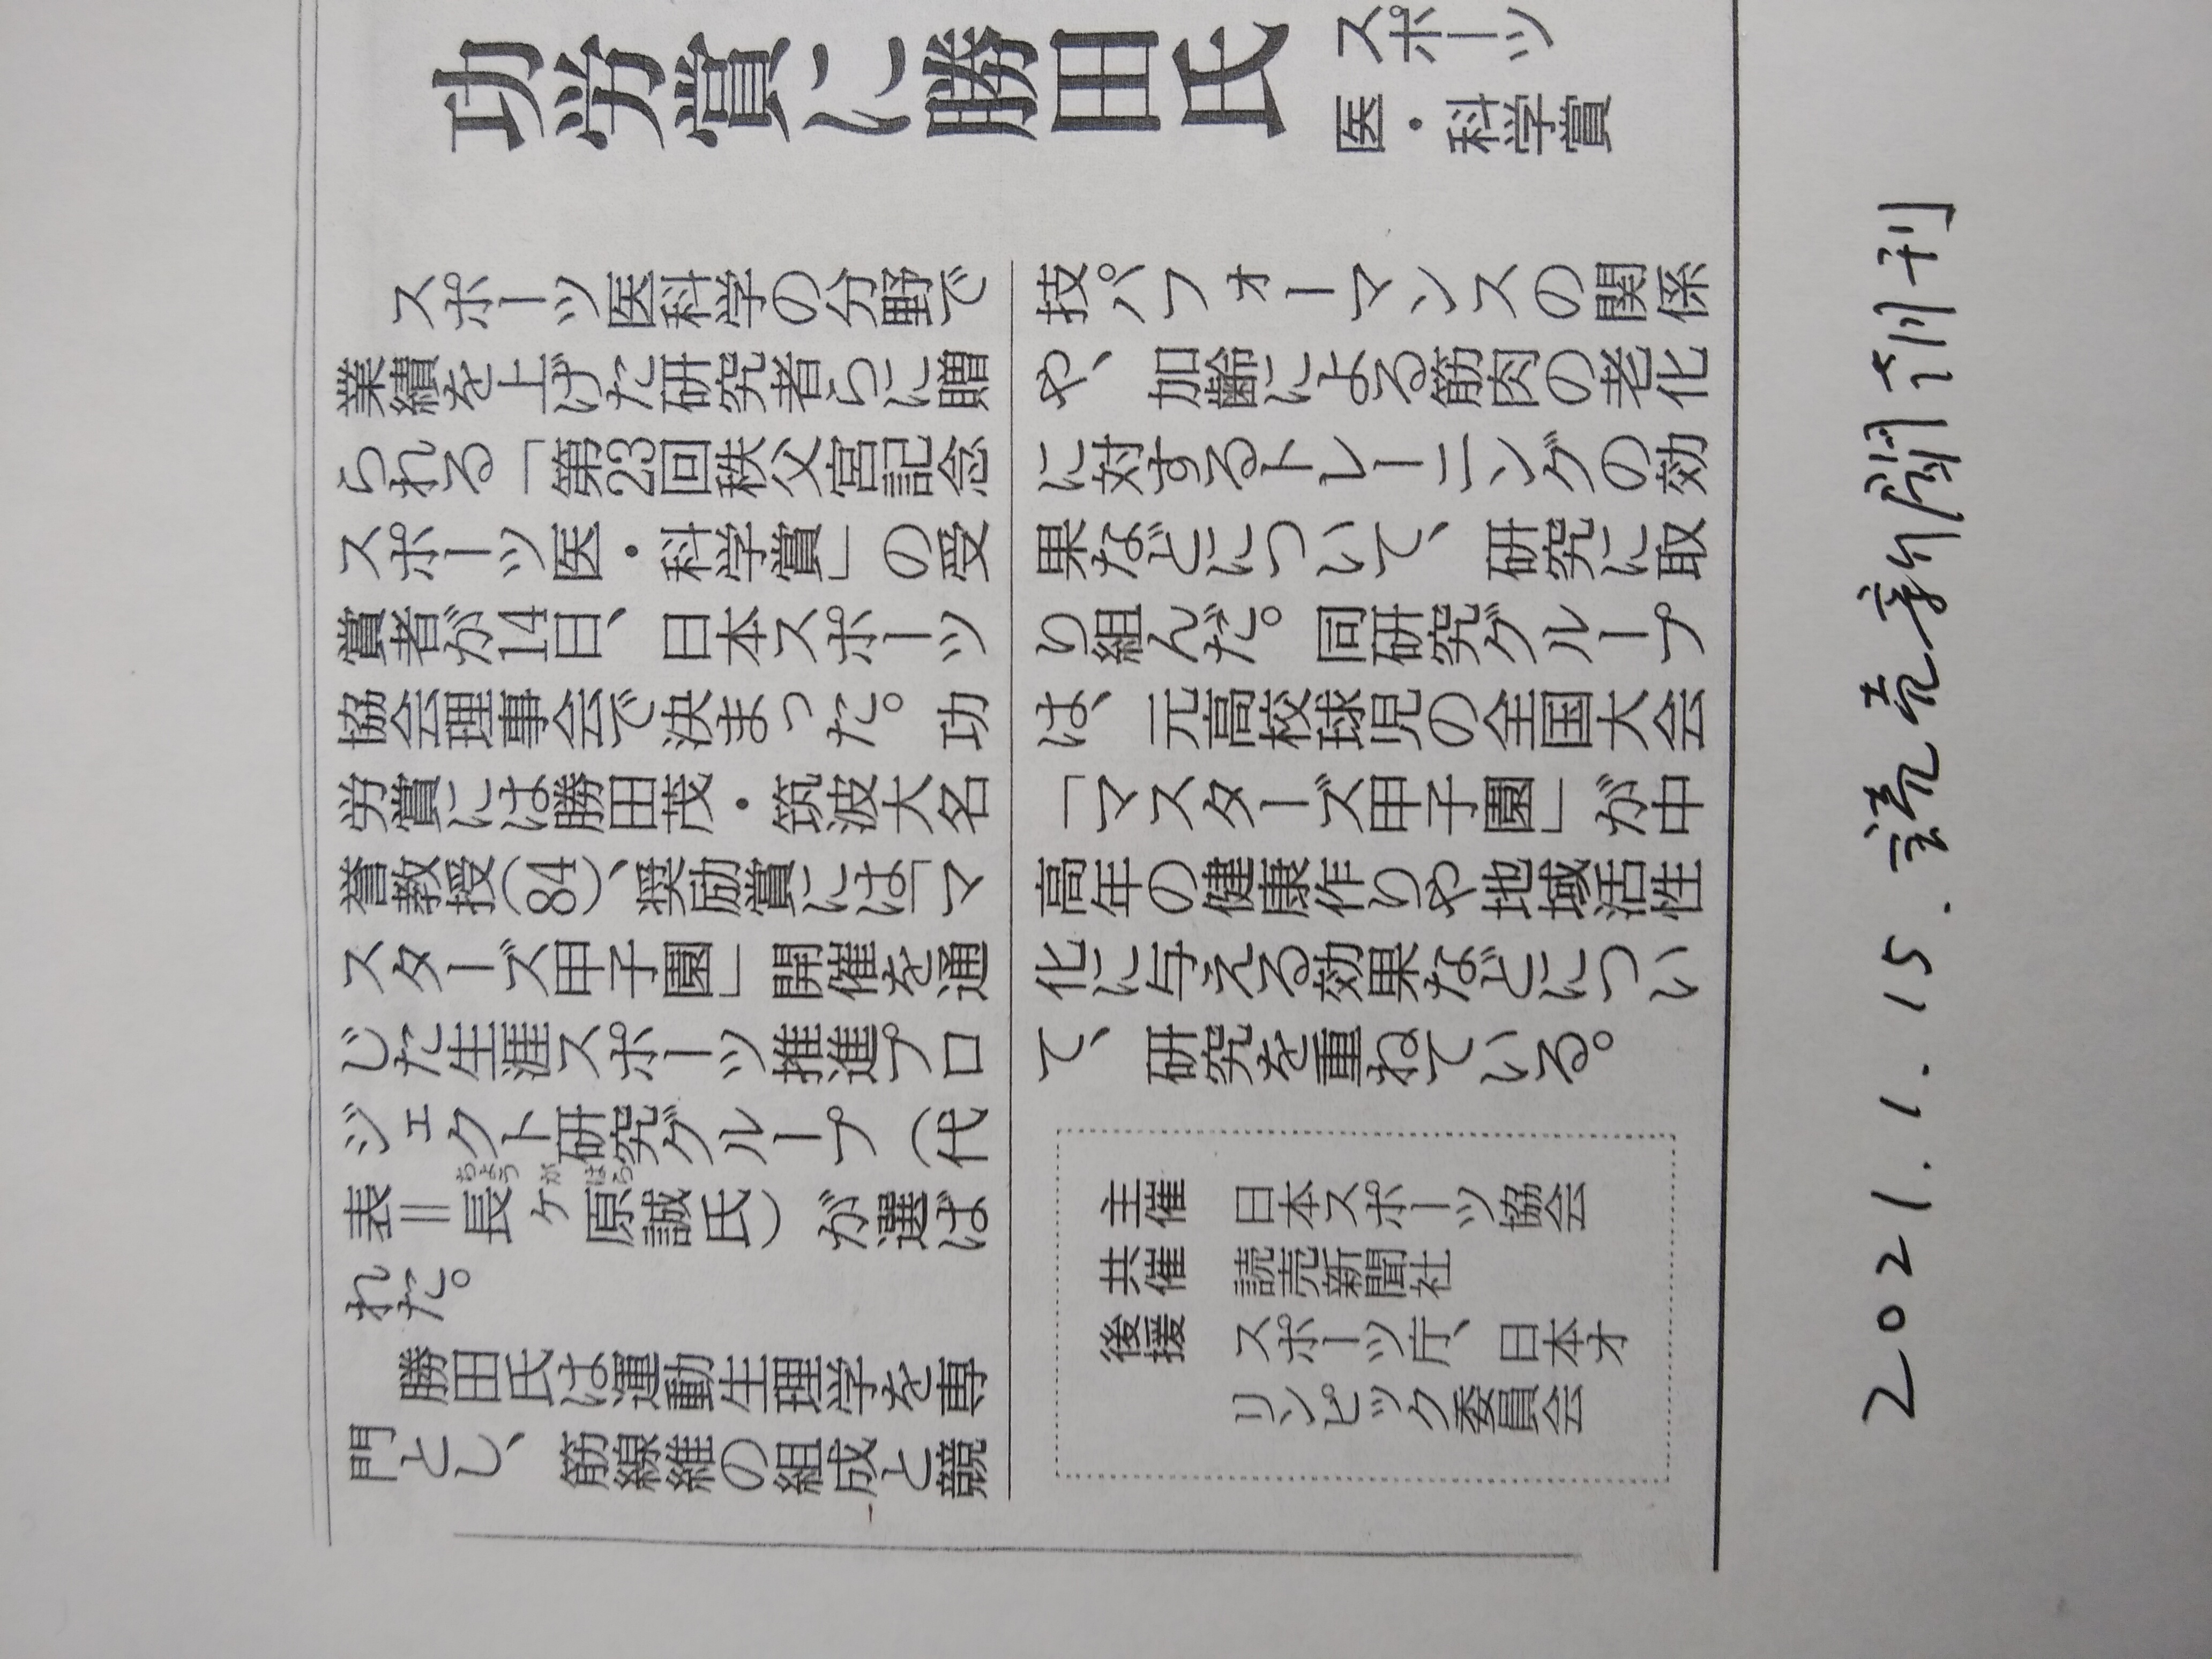 功労賞に勝田氏
スポーツ
医・科学賞
スポーツ医科学の分野で
業績を上げた研究者らに贈
られる「第23回秩父宮記念
スポーツ医・科学賞」の受
賞者が14日、日本スポーツ
協会理事会で決まった。功
労賞には勝田茂・筑波大名
誉教授(84)、奨励賞には「マ
スターズ甲子園」開催を通
じた生涯スポーツ推進プロ
ジェクト研究グループ（代
表＝長ケ原誠氏）が選ば
ちょうがはら
れた。
勝田氏は運動生理学を専
門とし、筋線維の組成と競
技パフォーマンスの関係
や、加齢による筋肉の老化
に対するトレーニングの効
果などについて、研究に取
り組んだ。同研究グループ
は、元高校球児の全国大会
「マスターズ甲子園」が中
高年の健康作りや地域活性
化に与える効果などについ
て、研究を重ねている。
主催 日本スポーツ協会
共催 読売新聞社
後援 スポーツ庁、日本オ
リンピック委員会
2021.1.15.読売新聞朝刊